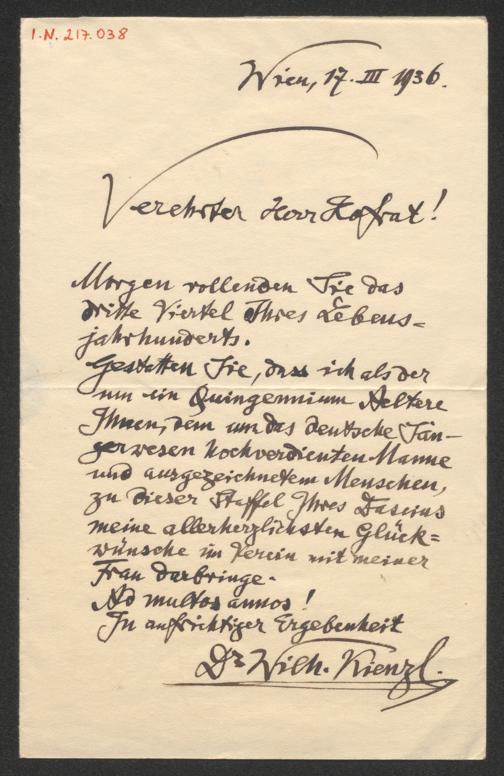 I.N. 217.038
Wien, 17. III 1936.
Verehrter Herr Hofrat!
Morgen vollenden Sie das
dritte Viertel Ihres Lebens-
jahrhunderts.
Gestatten Sie, dass ich als der
um ein Quingennium Aeltere
Ihnen, dem um das deutsche Sän-
gerwesen hochverdienten Manne
und ausgezeichnetem Menschen,
zu dieser Staffel Ihres Daseins
meine allerherzlichsten Glück-
wünsche im Verein mit meiner
Frau darbringe.
Ad multos annos!
In aufrichtiger Ergebenheit
Dr. Wilh. Kienzl.